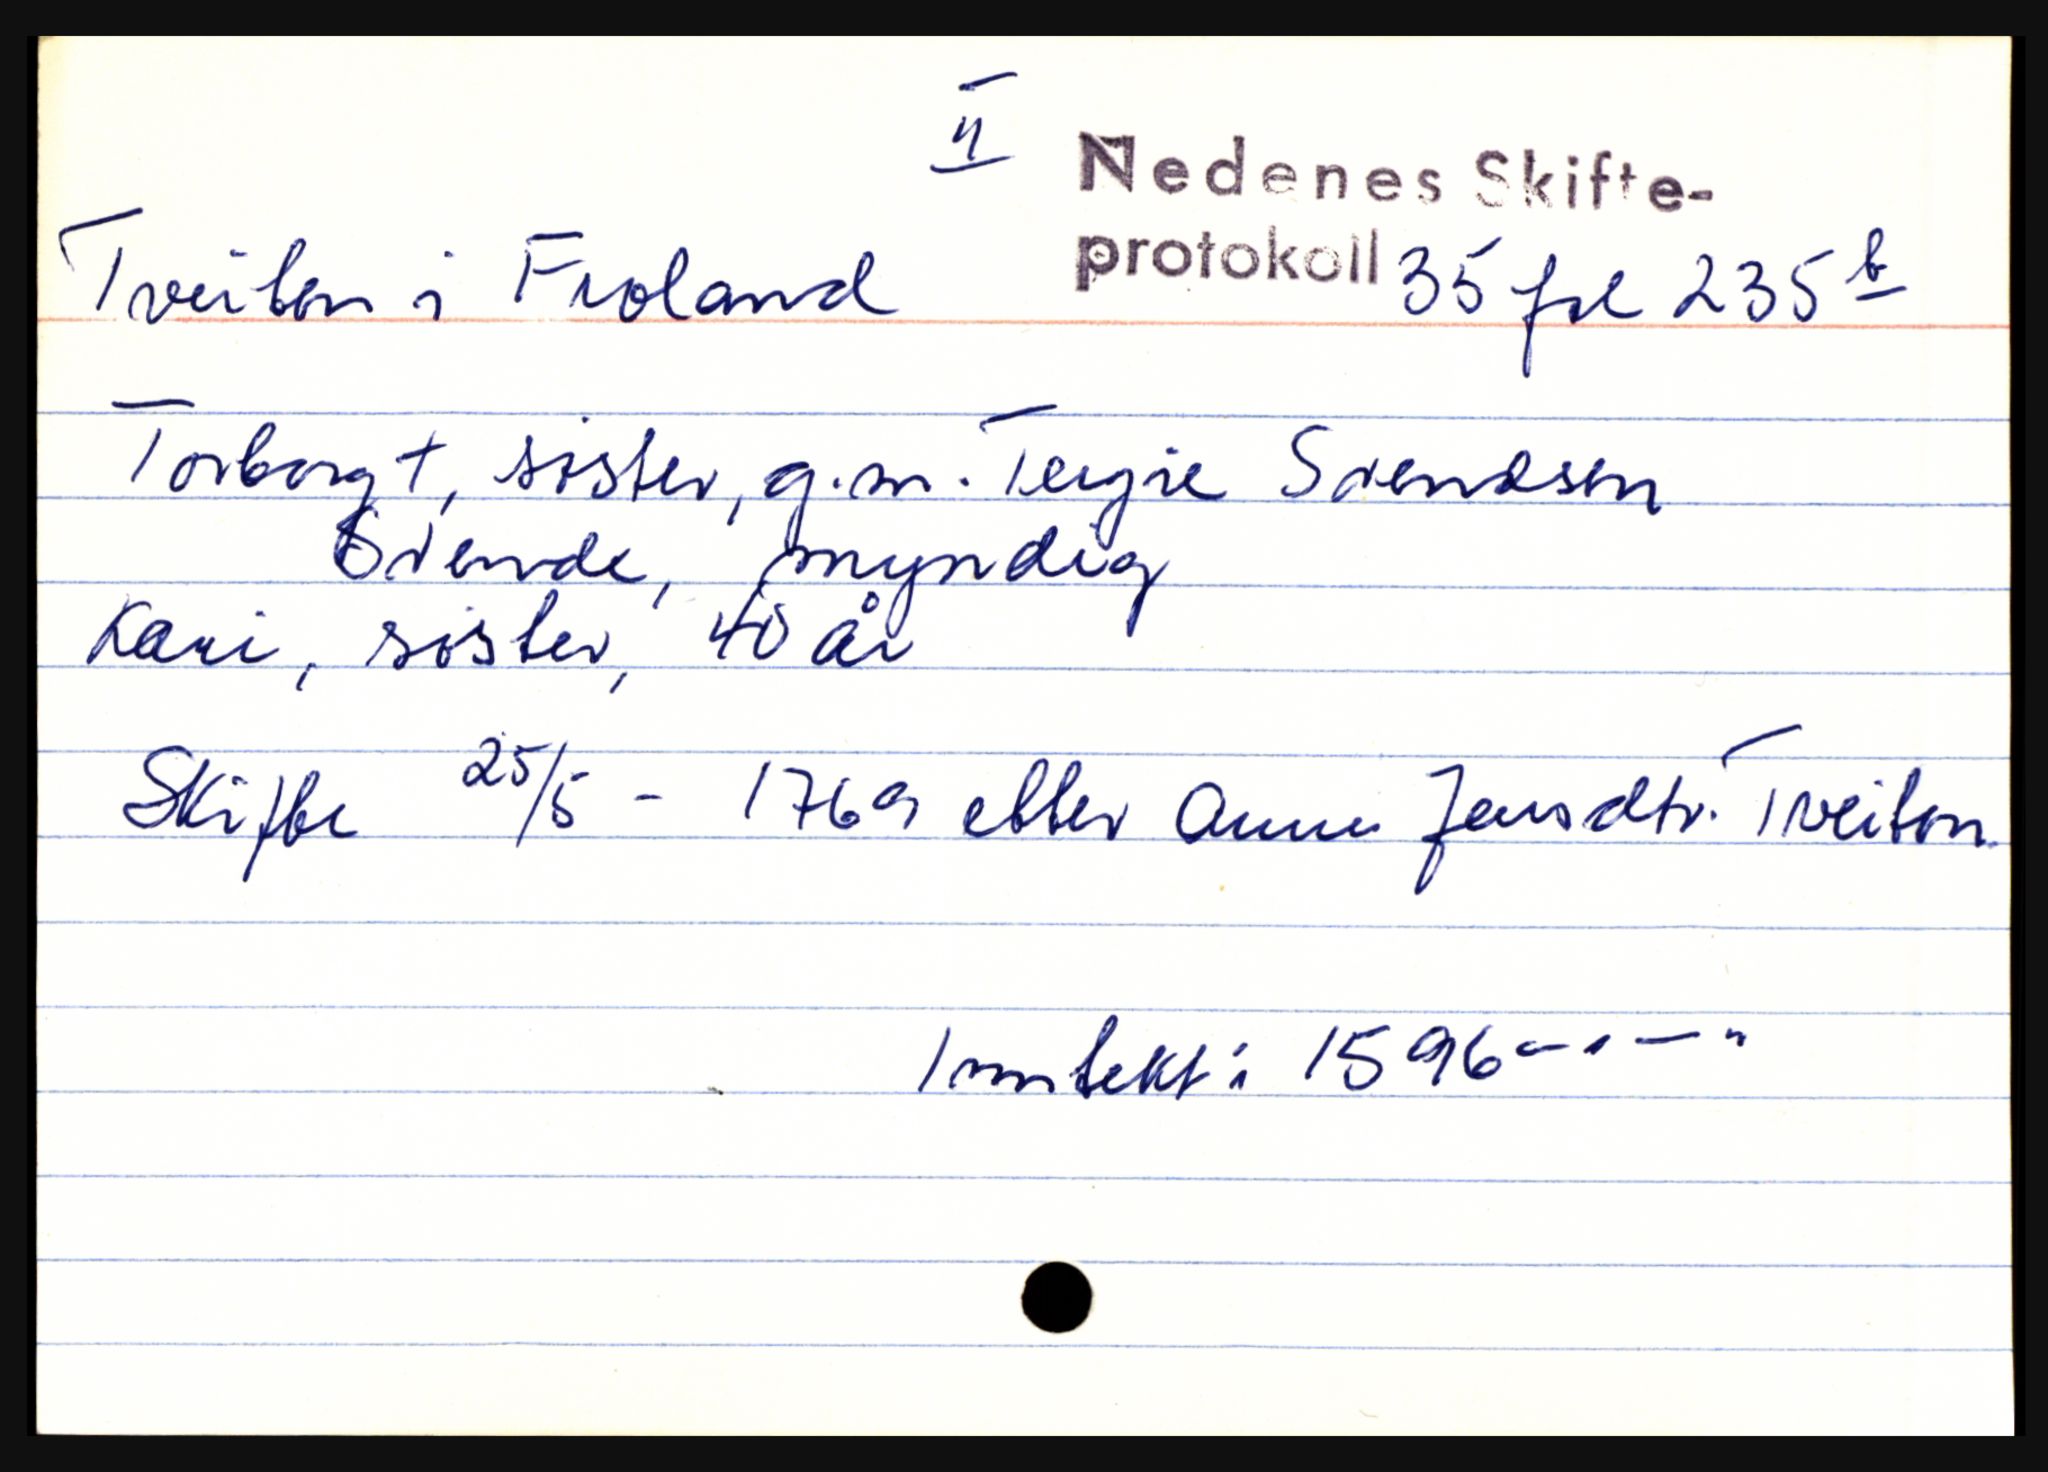 II
Nedenes Skifte-
protokoll 35 fol 235 b
Tveiten i Froland
Torborg †, søster, g.m. Tergie Svendsen
Svende, myndig
Kari, søster, 40 år
Skifte 25/5 - 1769 etter Anne Jensdtr. Tveiten.
Inntekt: 1596 - " - "